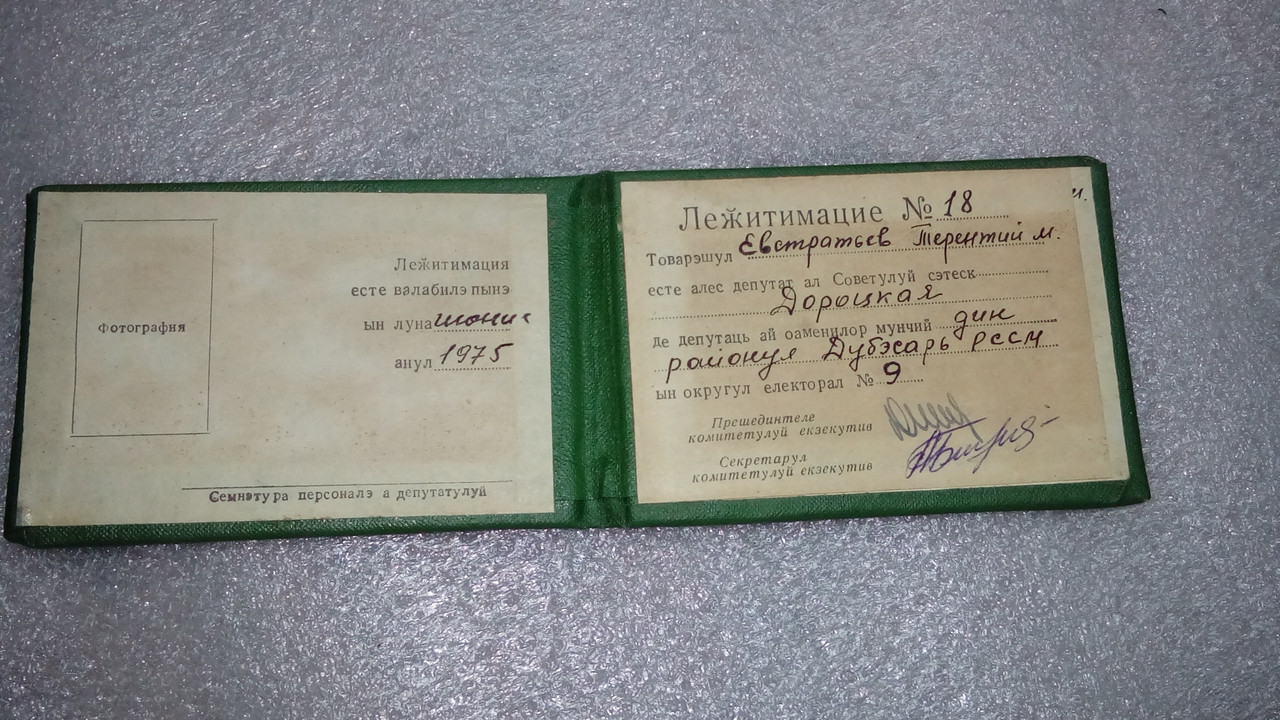 Фотография
Лежитимация
есте валабилэ пынэ
ын луна июние
анул 1975
Семнэтура персоналэ а депутатулуй
Лежитимацие № 18
Товарэшул Евстратьев Терентий М.
есте алес депутат ал Советулуй сэтеск
Дороцкая
де депутаць ай оаменилор мунчий дин
районул Дубэсарь РССМ
ын округул електорал № 9
Прешединтеле
комитетулуй екзекутив
Секретарул
комитетулуй екзекутив